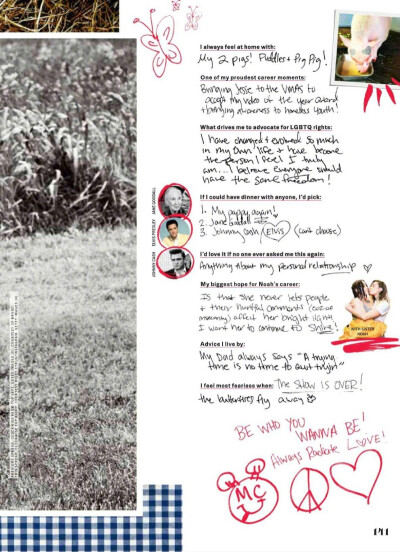 I always feel at home with:
My 2 pigs! Puddles + Pig Pig!
One of my proudest career moments:
Bringing Jesse to the VMAs to
accept my video of the year award
+ bringing awareness to homeless youth!
What drives me to advocate for LGBTQ rights:
I have changed + evolved so much
in my own life + have become
the person I feel I truly
am... I believe everyone should
have the same freedom!
If I could have dinner with anyone, I'd pick:
1. My pappy again!
2. Jane Goodall
3. Johnny Cash / ELVIS (can't choose)
JANE GOODALL
ELVIS PRESLEY
JOHNNY CASH
I'd love it if no one ever asked me this again:
Anything about my personal relationship
My biggest hope for Noah's career:
Is that she never lets people
+ their hurtful comments
affect her bright light!
I want her to continue to Shine!
WITH SISTER
NOAH
Advice I live by:
My Dad always says "A trying
time is no time to quit tryin"
I feel most fearless when: The show is OVER!
the butterflies fly away
BE WHO YOU
WANNA BE!
Always Radiate LOVE!
MC